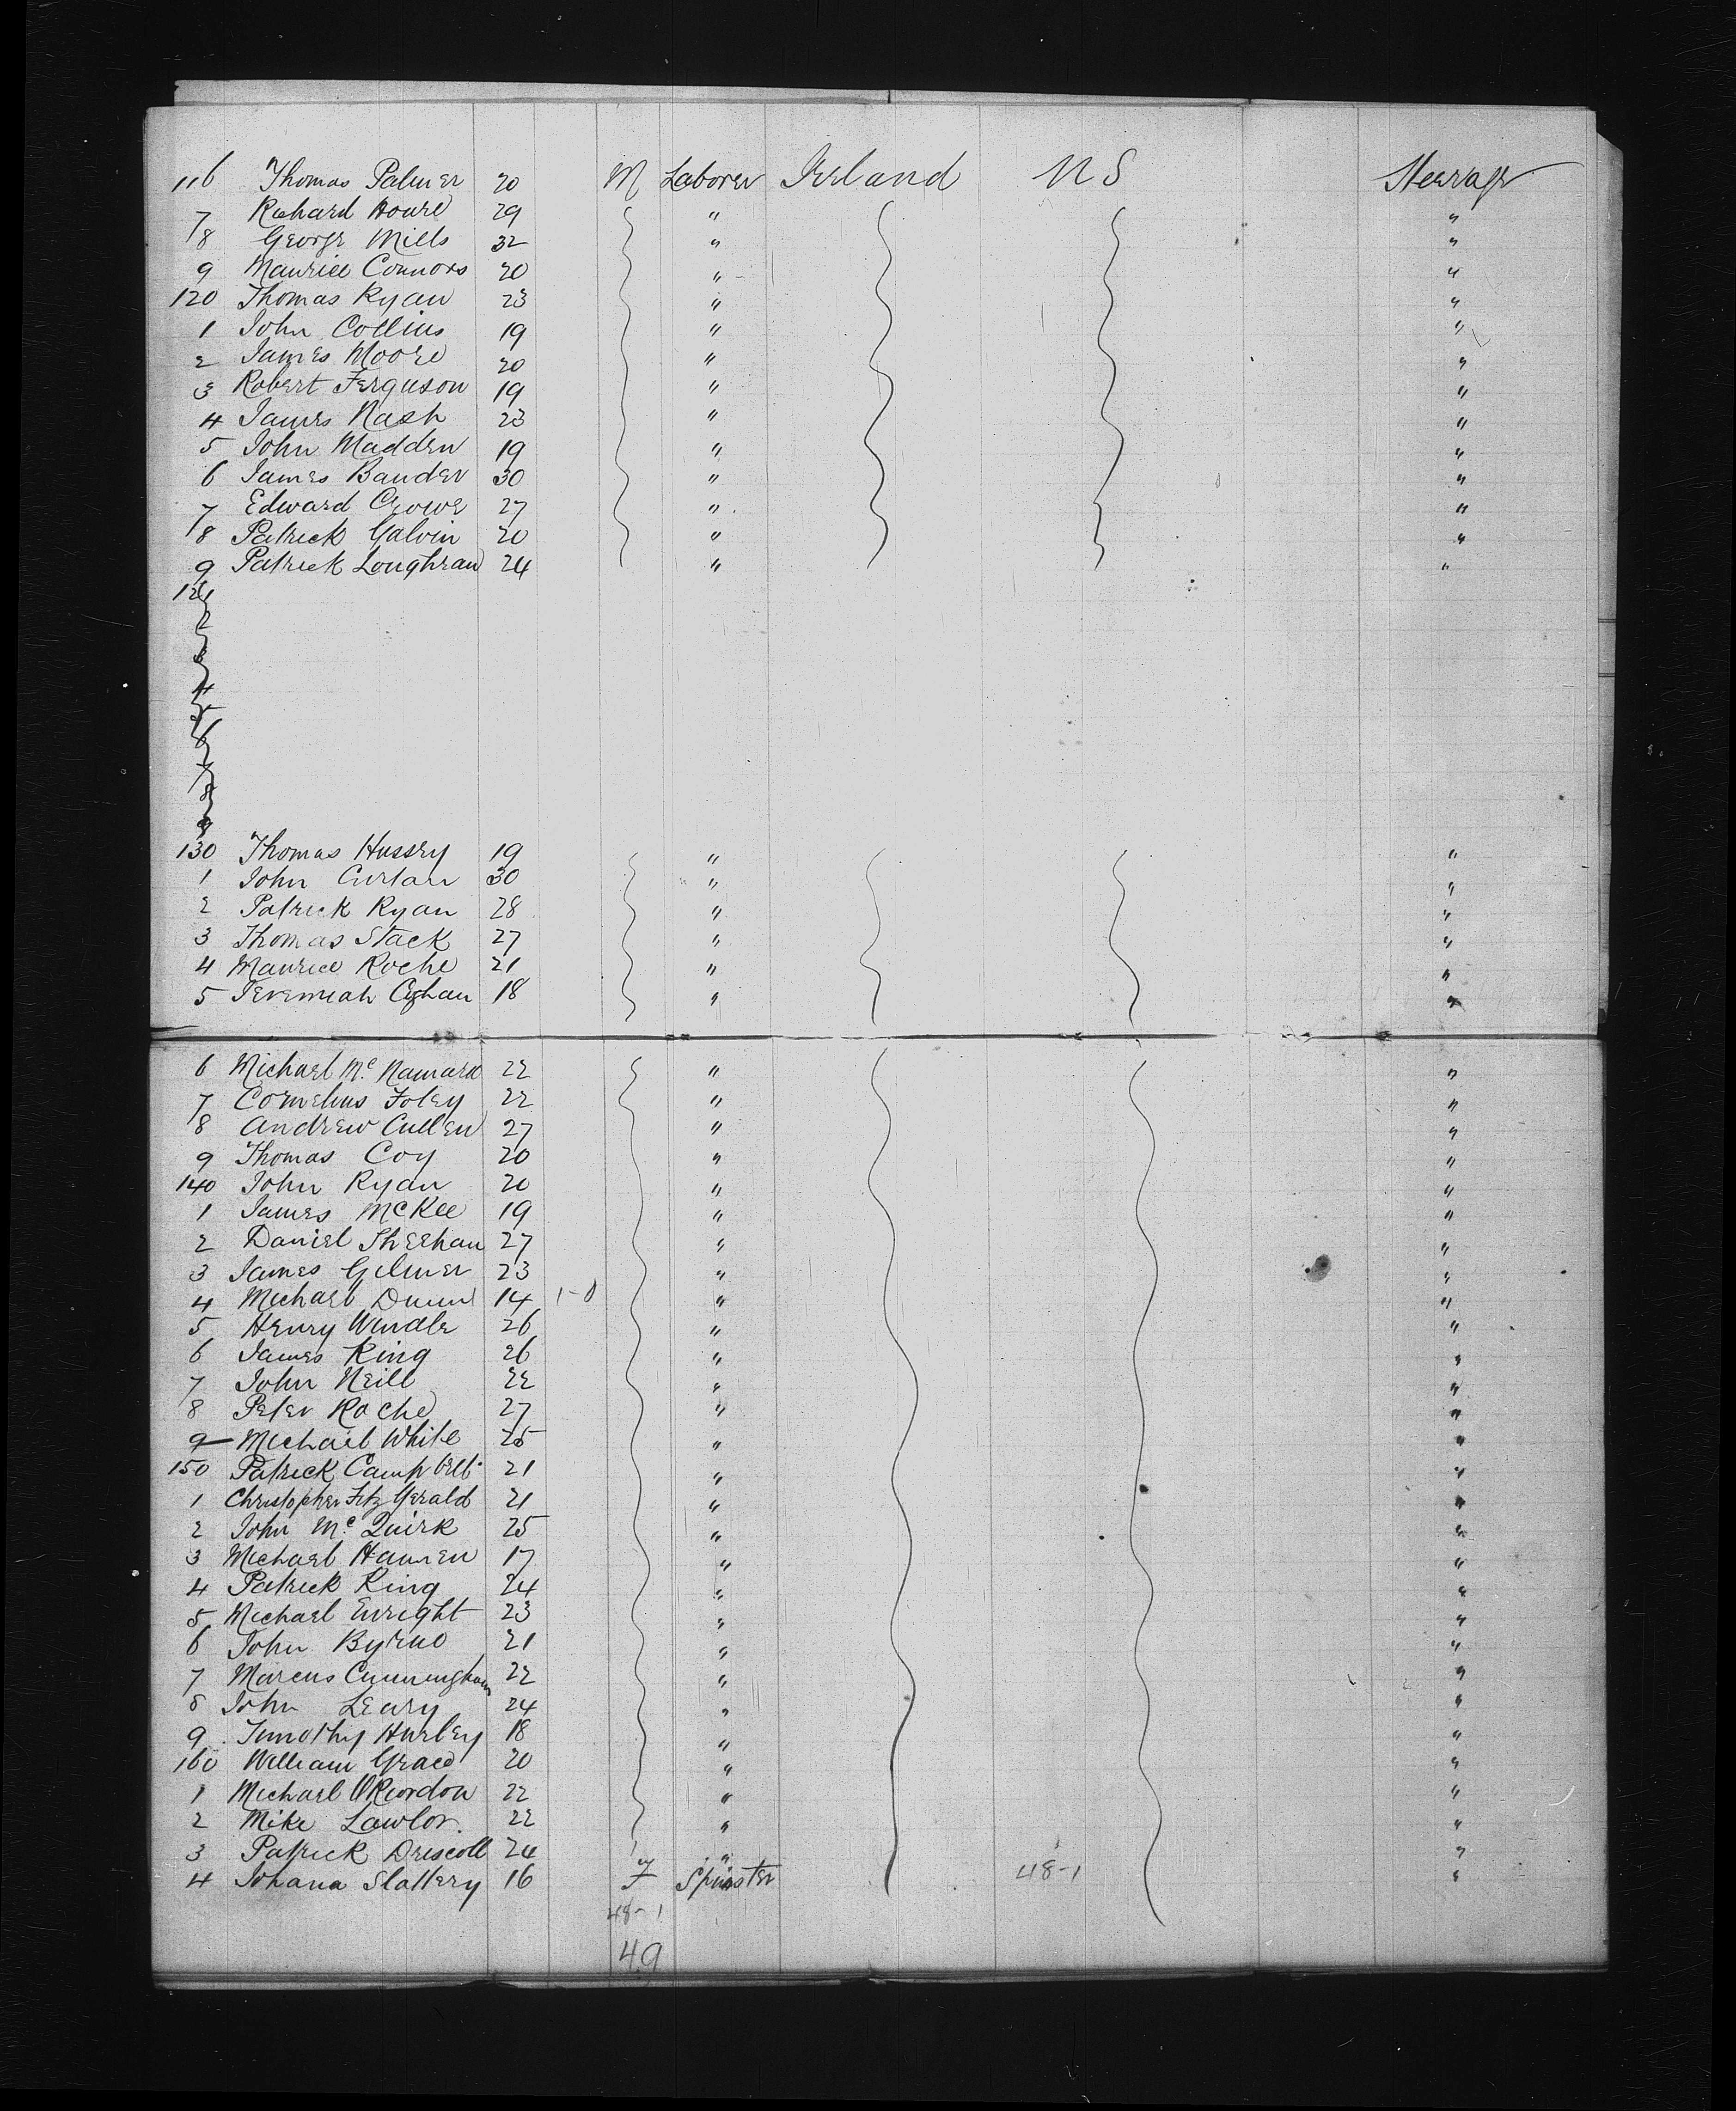 116 Thomas Palmer 20 M Laborer Ireland U S Steerage
7 Richard Hoare 29 " "
8 George Mills 32 " "
9 Maurice Connors 20 " "
120 Thomas Ryan 23 " "
1 John Collins 19 " "
2 James Moore 20 " "
3 Robert Ferguson 19 " "
4 James Nash 23 " "
5 John Madden 19 " "
6 James Bander 30 " "
7 Edward Crowe 27 " "
8 Patrick Galvin 20 " "
9 Patrick Loughran 24 " "
121
2
3
4
5
6
7
8
9
130 Thomas Hussey 19 " "
1 John 30 " "
2 Patrick Ryan 28 " "
3 Thomas Stack 27 " "
4 Maurice Roche 21 " "
5 Jeremiah 18 " "
6 Michael Mc Namara 22 " "
7 Cornelius Foley 22 " "
8 Andrew Cullen 27 " "
9 Thomas Coy 20 " "
140 John Ryan 20 " "
1 James McKee 19 " "
2 Daniel Sheehan 27 " "
3 James Gilmer 23 " "
4 Michael Dunn 14 1-0 " "
5 Henry Windle 26 " "
6 James King 26 " "
7 John Neill 22 " "
8 Peter Roche 27 " "
9 Michael White 25 " "
150 Patrick Campbell 21 " "
1 Christopher Fitz Gerald 21 " "
2 John Mc Quirk 25 " "
3 Michael 17 " "
4 Patrick King 24 " "
5 Michael Enright 23 " "
6 John Byrne 21 " "
7 Marcus Cunningham 22 " "
8 John Leary 24 " "
9 Timothy Hurley 18 " "
160 William Grace 20 " "
1 Michael O'Riordon 22 " "
2 Mike Lawlor 22 " "
3 Patrick Driscoll 24 " "
4 Johana Slattery 16 F Spinster 48-1 "
48-1
49